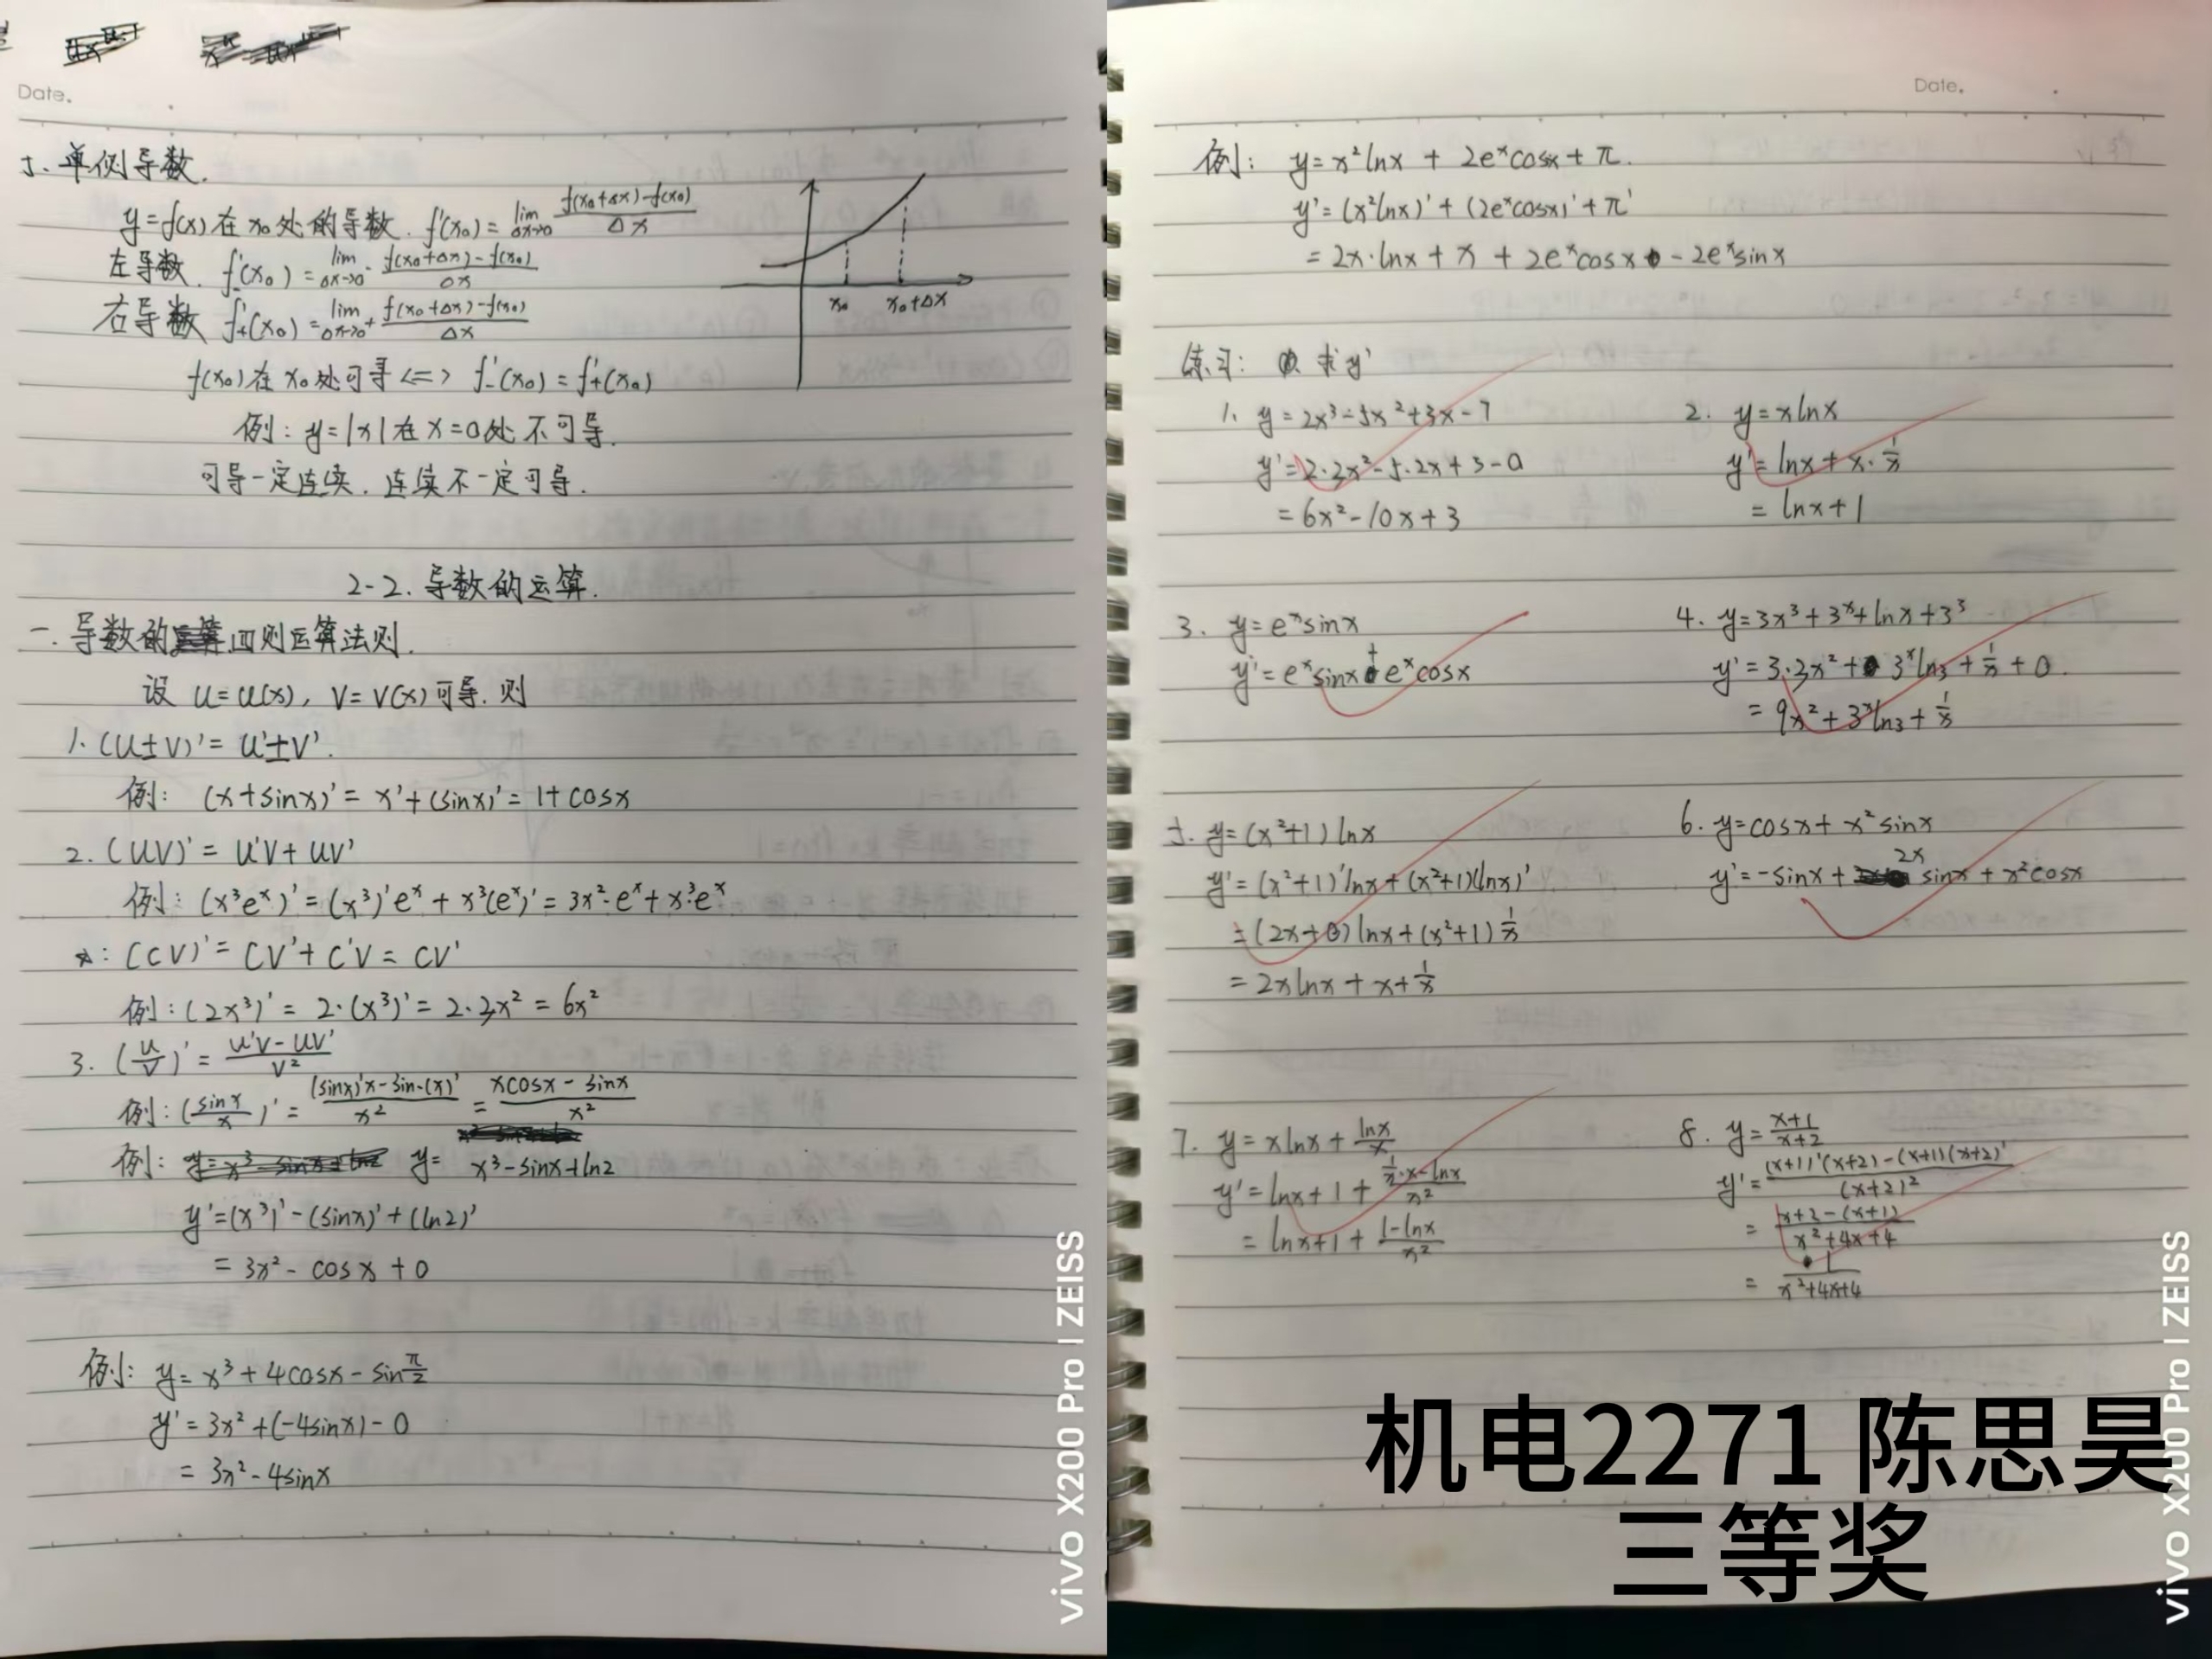 Date.
5、单侧导数.
y=f(x)在x₀处的导数. f'(x₀)=lim Δx→0 (f(x₀+Δx)-f(x₀))/Δx
左导数. f'₋(x₀)=lim Δx→0⁻ (f(x₀+Δx)-f(x₀))/Δx
右导数 f'₊(x₀)=lim Δx→0⁺ (f(x₀+Δx)-f(x₀))/Δx
x₀ x₀+Δx
f(x₀)在x₀处可导<=> f'₋(x₀)=f'₊(x₀)
例: y=|x|在x=0处不可导.
可导一定连续. 连续不一定可导.
2-2. 导数的运算.
一. 导数的四则运算法则.
设 u=u(x), v=v(x)可导. 则
1. (u±v)'=u'±v'.
例: (x+sinx)'=x'+(sinx)'=1+cosx
2. (uv)'=u'v+uv'
例: (x³eˣ)'=(x³)'eˣ+x³(eˣ)'=3x²·eˣ+x³eˣ
*: (cv)'=cv'+c'v=cv'
例: (2x³)'=2·(x³)'=2·3x²=6x²
3. (u/v)'=(u'v-uv')/v²
例: (sinx/x)'=((sinx)'x-sin·(x)')/x²=(xcosx-sinx)/x²
例: y= x³-sinx+ln2
y'=(x³)'-(sinx)'+(ln2)'
=3x²-cosx+0
例: y=x³+4cosx-sin π/2
y'=3x²+(-4sinx)-0
=3x²-4sinx
vivo X200 Pro | ZEISS
Date.
例: y=x²lnx+2eˣcosx+π.
y'=(x²lnx)'+(2eˣcosx)'+π'
=2x·lnx+x+2eˣcosx-2eˣsinx
练习: 求y'
1、y=2x³-5x²+3x-7
y'=2·3x²-5·2x+3-0
=6x²-10x+3
2. y=xlnx
y'=lnx+x·1/x
=lnx+1
3. y=eˣsinx
y'=eˣsinx+eˣcosx
4. y=3x³+3ˣ+lnx+3³
y'=3·3x²+3ˣln3+1/x+0.
=9x²+3ˣln3+1/x
5. y=(x²+1)lnx
y'=(x²+1)'lnx+(x²+1)(lnx)'
=(2x+0)lnx+(x²+1)1/x
=2xlnx+x+1/x
6. y=cosx+x²sinx
y'=-sinx+2xsinx+x²cosx
7. y=xlnx+lnx/x
y'=lnx+1+(1/x·x-lnx)/x²
=lnx+1+(1-lnx)/x²
8. y=(x+1)/(x+2)
y'=((x+1)'(x+2)-(x+1)(x+2)')/(x+2)²
=(x+2-(x+1))/(x²+4x+4)
=1/(x²+4x+4)
机电2271 陈思昊
三等奖
vivo X200 Pro | ZEISS